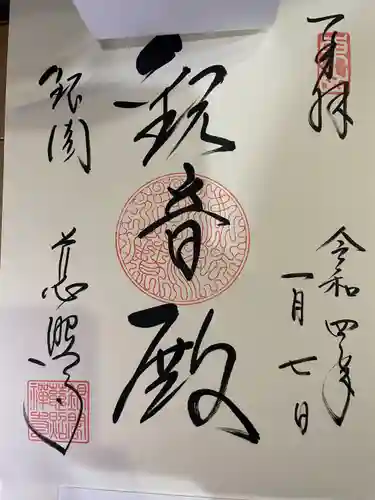 奉拝
令和四年
一月七日
観音殿
銀閣
慈照寺